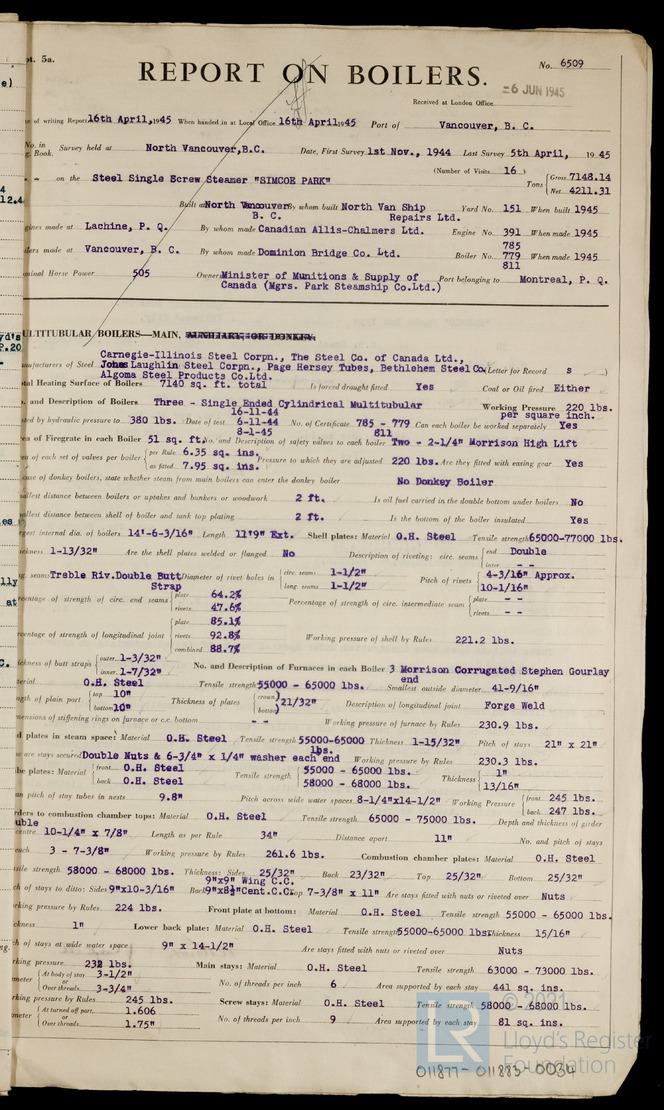 pt. 5a.
No. 6509
REPORT ON BOILERS.
-6 JUN 1945
Received at London Office
e of writing Report 16th April, 1945 When handed in at Local Office 16th April 1945 Port of Vancouver, B. C.
No. in Survey held at North Vancouver, B.C. Date, First Survey 1st Nov., 1944 Last Survey 5th April, 1945
g. Book.
(Number of Visits 16 )
on the Steel Single Screw Steamer "SIMCOE PARK" Tons Gross 7148.14
Net 4211.31
Built at North Vancouver By whom built North Van Ship Yard No. 151 When built 1945
B. C. Repairs Ltd.
gines made at Lachine, P. Q. By whom made Canadian Allis-Chalmers Ltd. Engine No. 391 When made 1945
785
lers made at Vancouver, B. C. By whom made Dominion Bridge Co. Ltd. Boiler No. 779 When made 1945
811
minal Horse Power 505 Owners Minister of Munitions & Supply of Port belonging to Montreal, P. Q.
Canada (Mgrs. Park Steamship Co.Ltd.)
ULTITUBULAR BOILERS—MAIN, AUXILIARY, OR DONKEY.
Carnegie-Illinois Steel Corpn., The Steel Co. of Canada Ltd.,
anufacturers of Steel Jones Laughlin Steel Corpn., Page Hersey Tubes, Bethlehem Steel Co. (Letter for Record s )
Algoma Steel Products Co.Ltd.
tal Heating Surface of Boilers 7140 sq. ft. total Is forced draught fitted Yes Coal or Oil fired Either
. and Description of Boilers Three - Single Ended Cylindrical Multitubular Working Pressure 220 lbs.
16-11-44 per square inch.
ted by hydraulic pressure to 380 lbs. Date of test 6-11-44 No. of Certificate 785 - 779 Can each boiler be worked separately Yes
8-1-45 811
ea of Firegrate in each Boiler 51 sq. ft. No. and Description of safety valves to each boiler Two - 2-1/4" Morrison High Lift
ea of each set of valves per boiler per Rule 6.35 sq. ins. Pressure to which they are adjusted 220 lbs. Are they fitted with easing gear Yes
as fitted 7.95 sq. ins.
ase of donkey boilers, state whether steam from main boilers can enter the donkey boiler No Donkey Boiler
allest distance between boilers or uptakes and bunkers or woodwork 2 ft. Is oil fuel carried in the double bottom under boilers No
allest distance between shell of boiler and tank top plating 2 ft. Is the bottom of the boiler insulated Yes
gest internal dia. of boilers 14'-6-3/16" Length 11'9" Ext. Shell plates: Material O.H. Steel Tensile strength 65000-77000 lbs.
ickness 1-13/32" Are the shell plates welded or flanged No Description of riveting: circ. seams end Double
inter. - -
g. seams Treble Riv.Double Butt Diameter of rivet holes in circ. seams 1-1/2" Pitch of rivets 4-3/16" Approx.
Strap long. seams 1-1/2" 10-1/16"
centage of strength of circ. end seams plate 64.2% Percentage of strength of circ. intermediate seam plate - -
rivets 47.6% rivets - -
plate 85.1%
rcentage of strength of longitudinal joint rivets 92.8% Working pressure of shell by Rules 221.2 lbs.
combined 88.7%
ickness of butt straps outer 1-3/32" No. and Description of Furnaces in each Boiler 3 Morrison Corrugated Stephen Gourlay
inner 1-7/32" end
terial O.H. Steel Tensile strength 55000 - 65000 lbs. Smallest outside diameter 41-9/16"
ngth of plain part top 10" Thickness of plates crown 21/32" Description of longitudinal joint Forge Weld
bottom 10" bottom
mensions of stiffening rings on furnace or c.c. bottom - - Working pressure of furnace by Rules 230.9 lbs.
d plates in steam space: Material O.H. Steel Tensile strength 55000-65000 Thickness 1-15/32" Pitch of stays 21" x 21"
lbs.
w are stays secured Double Nuts & 6-3/4" x 1/4" washer each end Working pressure by Rules 230.3 lbs.
be plates: Material front O.H. Steel Tensile strength 55000 - 65000 lbs. Thickness 1"
back O.H. Steel 58000 - 68000 lbs. 13/16"
an pitch of stay tubes in nests 9.8" Pitch across wide water spaces 8-1/4"x14-1/2" Working Pressure front 245 lbs.
back 247 lbs.
rders to combustion chamber tops: Material O.H. Steel Tensile strength 65000 - 75000 lbs. Depth and thickness of girder
uble
centre 10-1/4" x 7/8" Length as per Rule 34" Distance apart 11" No. and pitch of stays
each 3 - 7-3/8" Working pressure by Rules 261.6 lbs. Combustion chamber plates: Material O.H. Steel
sile strength 58000 - 68000 lbs. Thickness: Sides 25/32" Back 23/32" Top 25/32" Bottom 25/32"
9"x9" Wing C.C.
ch of stays to ditto: Sides 9"x10-3/16" Back 9"x8½" Cent.C.C. Top 7-3/8" x 11" Are stays fitted with nuts or riveted over Nuts
rking pressure by Rules 224 lbs. Front plate at bottom: Material O.H. Steel Tensile strength 55000 - 65000 lbs.
ckness 1" Lower back plate: Material O.H. Steel Tensile strength 55000-65000 lbs. Thickness 15/16"
ch of stays at wide water space 9" x 14-1/2" Are stays fitted with nuts or riveted over Nuts
rking pressure 232 lbs. Main stays: Material O.H. Steel Tensile strength 63000 - 73000 lbs.
meter At body of stay 3-1/2" No. of threads per inch 6 Area supported by each stay 441 sq. ins.
or
Over threads 3-3/4"
rking pressure by Rules 245 lbs. Screw stays: Material O.H. Steel Tensile strength 58000 - 68000 lbs.
meter At turned off part 1.606 No. of threads per inch 9 Area supported by each stay 81 sq. ins.
or
Over threads 1.75"
LR
© 2021
Lloyd's Register
Foundation
011877-011883-0034